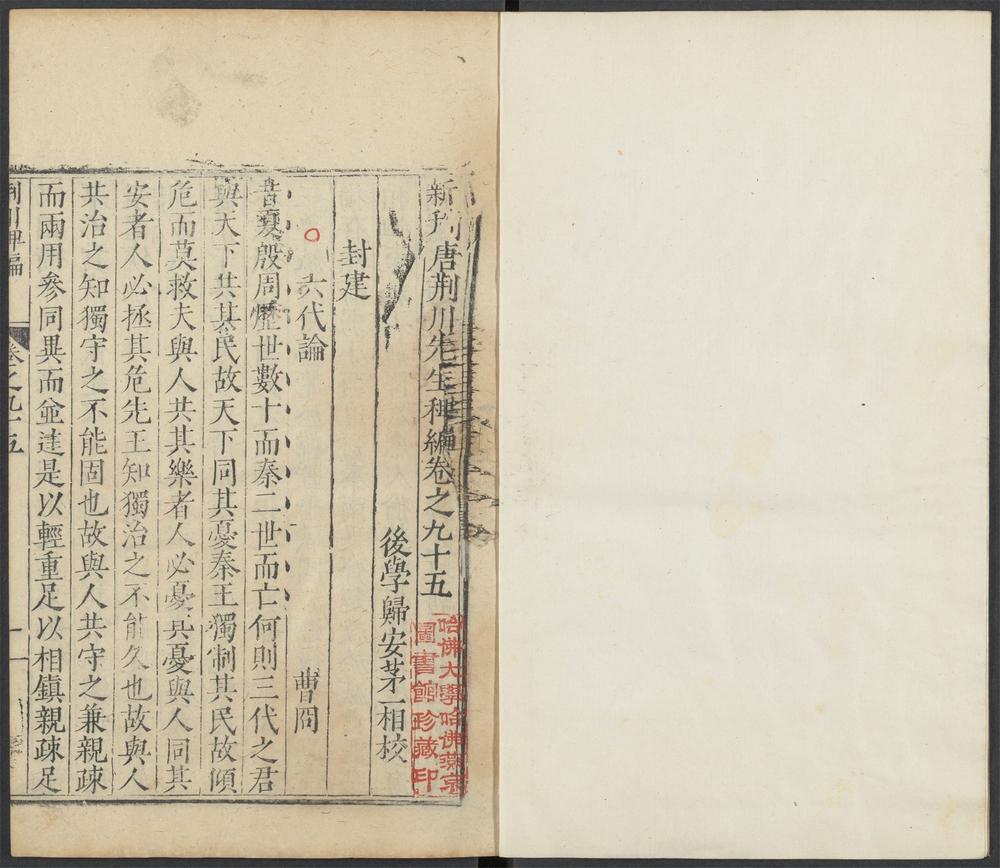 新刊唐荆川先生稗編卷之九十五
後學歸安茅一相校
封建
六代論
曹冏
昔夏殷周歷世數十而秦二世而亡何則三代之君
與天下共其民故天下同其憂秦王獨制其民故傾
危而莫救夫與人共其樂者人必憂其憂與人同其
安者人必拯其危先王知獨治之不能久也故與人
共治之知獨守之不能固也故與人共守之兼親疎
而兩用參同異而並進是以輕重足以相鎮親疎足
荆川稗編
卷之九十五
一
哈佛大學哈佛燕京
圖書館珍藏印